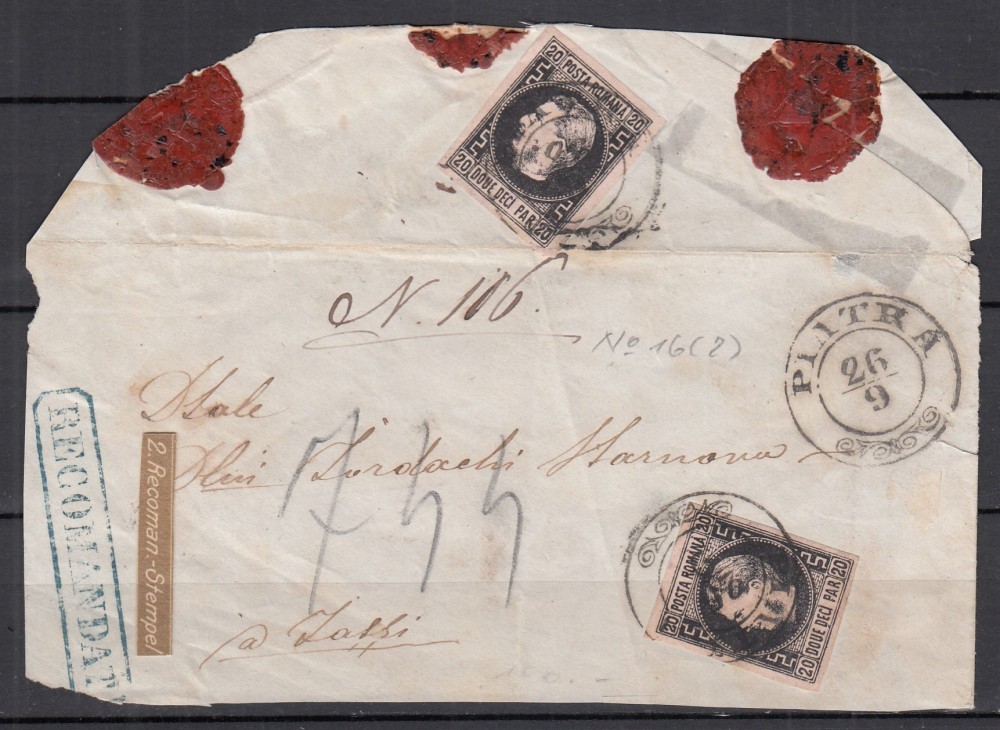 20 POSTA ROMANA 20
20 DOUE DECI PAR 20
N. 116.
No 16(2)
PIATRA
26/9
DSale
Dlui Iordachi Starnova
744
a Iassi
RECOMANDAT
2. Recoman.-Stempel
20 POSTA ROMANA 20
20 DOUE DECI PAR 20